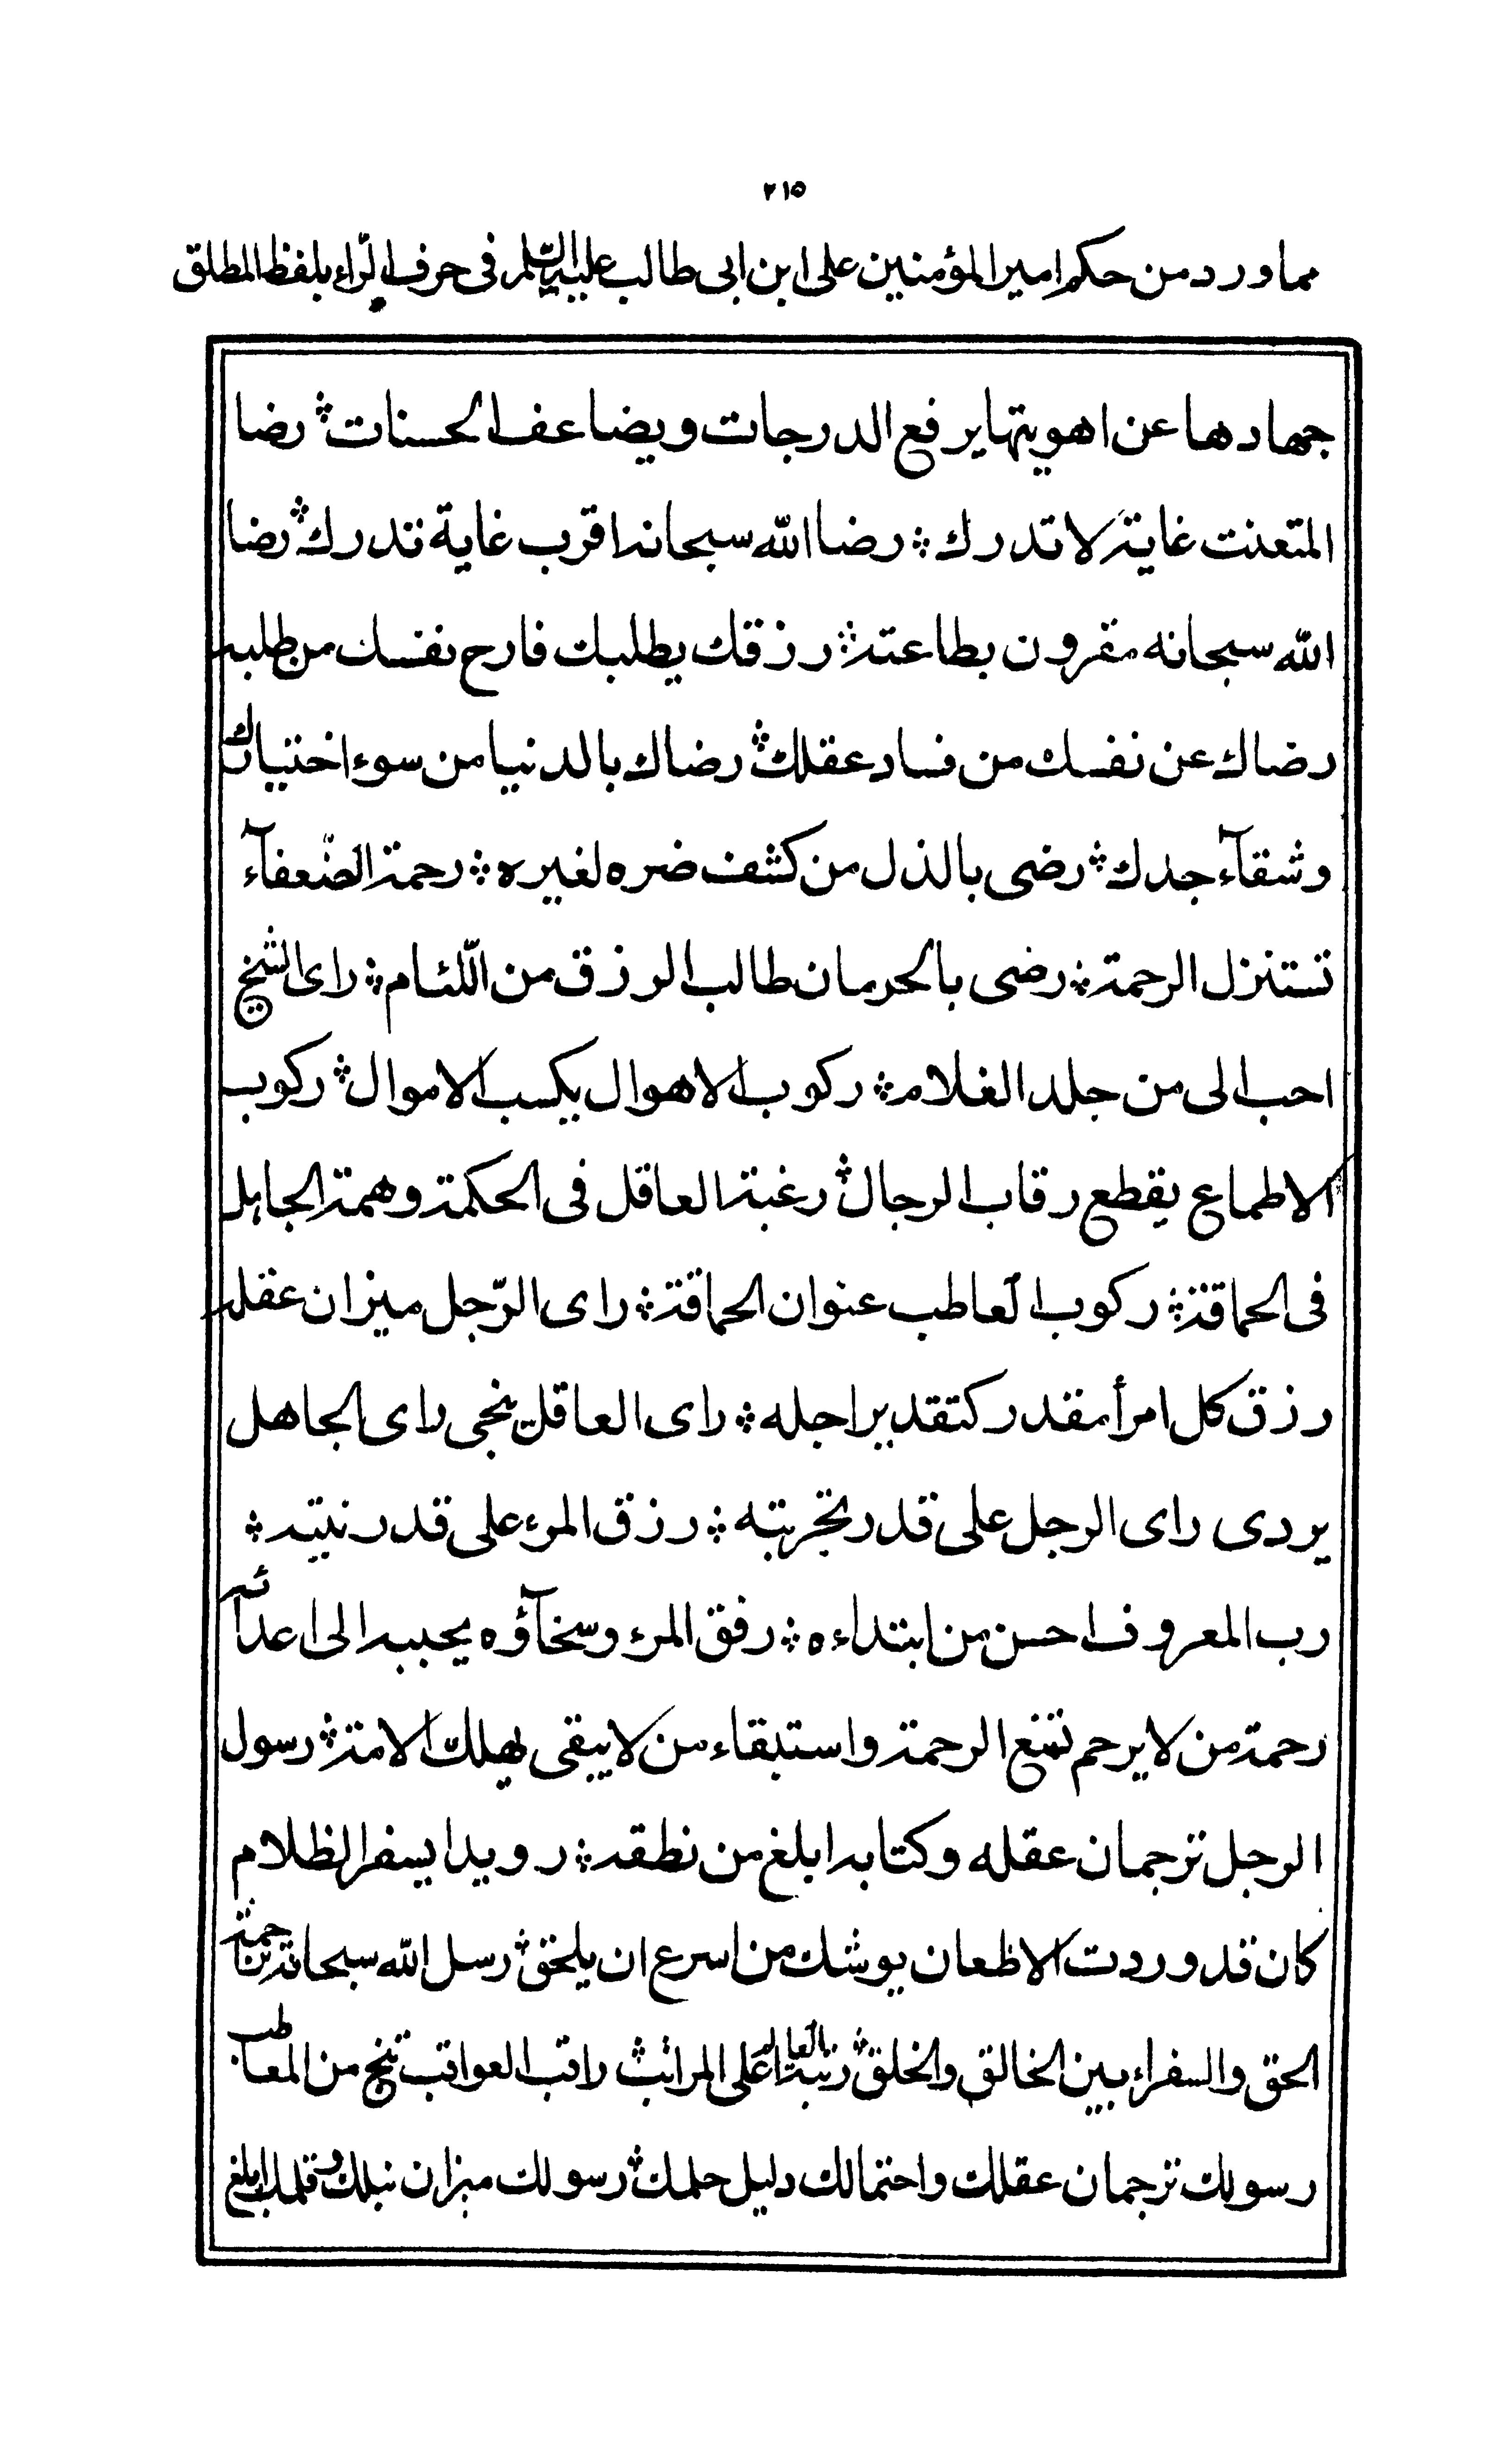 ٢١٥
مما ورد من حكم امير المؤمنين على ابن ابى طالب عليه السّلم فى حرف الرّاء بلفظ المطلق
جهادها عن اهويتها يرفع الدرجات ويضاعف الحسنات ؞ رضا
المتعنت غاية لا تدرك ؞ رضا الله سبحانه اقرب غاية تدرك ؞ رضا
الله سبحانه مقرون بطاعته ؞ رزقك يطلبك فارح نفسك من طلبه
رضاك عن نفسك من فساد عقلك ؞ رضاك بالدنيا من سوء اختيارك
وشقآء جدك ؞ رضى بالذل من كشف ضره لغيره ؞ رحمة الضّعفآء
تستنزل الرحمة ؞ رضى بالحرمان طالب الرزق من اللّئام ؞ راى الشيخ
احب الى من جلد الغلام ؞ ركوب الاهوال يكسب الاموال ؞ ركوب
الاطماع يقطع رقاب الرجال ؞ رغبة العاقل فى الحكمة وهمة الجاهل
فى الحماقة ؞ ركوب المعاطب عنوان الحماقة ؞ راى الرّجل ميزان عقله
رزق كل امرأ مقدر كتقدير اجله ؞ راى العاقل ينجى راى الجاهل
يردى راى الرجل على قدر تجربته ؞ رزق المرء على قدر نيته ؞
رب المعروف احسن من ابتداءه ؞ رفق المرء وسخآؤه يحببه الى اعدآئه
رحمة من لا يرحم تمنع الرحمة واستبقاء من لا يبقى يهلك الامة ؞ رسول
الرجل ترجمان عقله وكتابه ابلغ من نطقه ؞ رويدا يسفر الظلام
كان قد وردت الاظعان يوشك من اسرع ان يلحق ؞ رسل الله سبحانه تراجمة
الحق والسفراء بين الخالق والخلق ؞ رتبة العالم اعلى المراتب ؞ راقب العواقب تنج من المعاطب
رسولك ترجمان عقلك واحتمالك دليل حلمك ؞ رسولك ميزان نبلك وقلمك ابلغ